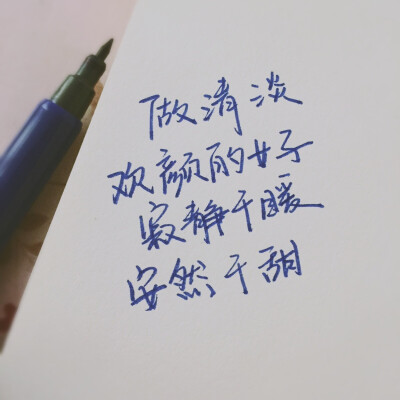 做清淡
欢颜的女子
寂静于暖
安然于甜